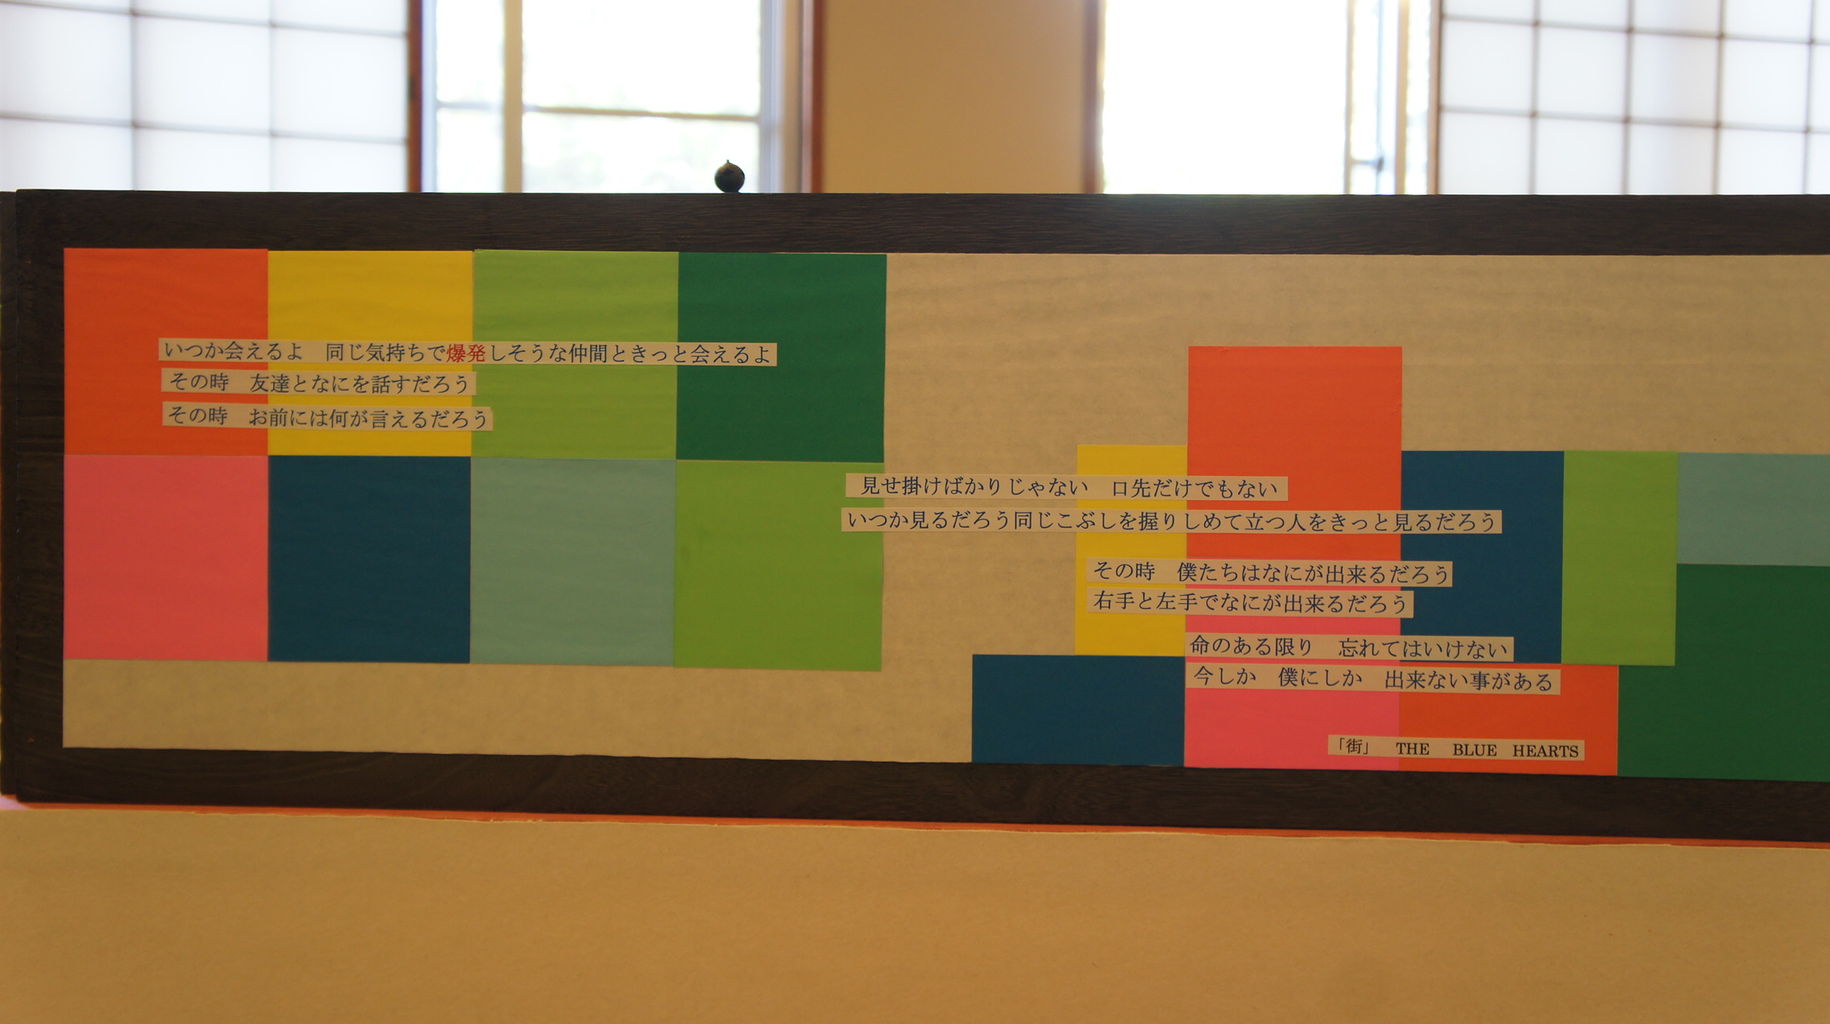 いつか会えるよ　同じ気持ちで爆発しそうな仲間ときっと会えるよ
その時　友達となにを話すだろう
その時　お前には何が言えるだろう
見せ掛けばかりじゃない　口先だけでもない
いつか見るだろう同じこぶしを握りしめて立つ人をきっと見るだろう
その時　僕たちはなにが出来るだろう
右手と左手でなにが出来るだろう
命のある限り　忘れてはいけない
今しか　僕にしか　出来ない事がある
「街」　THE　BLUE　HEARTS